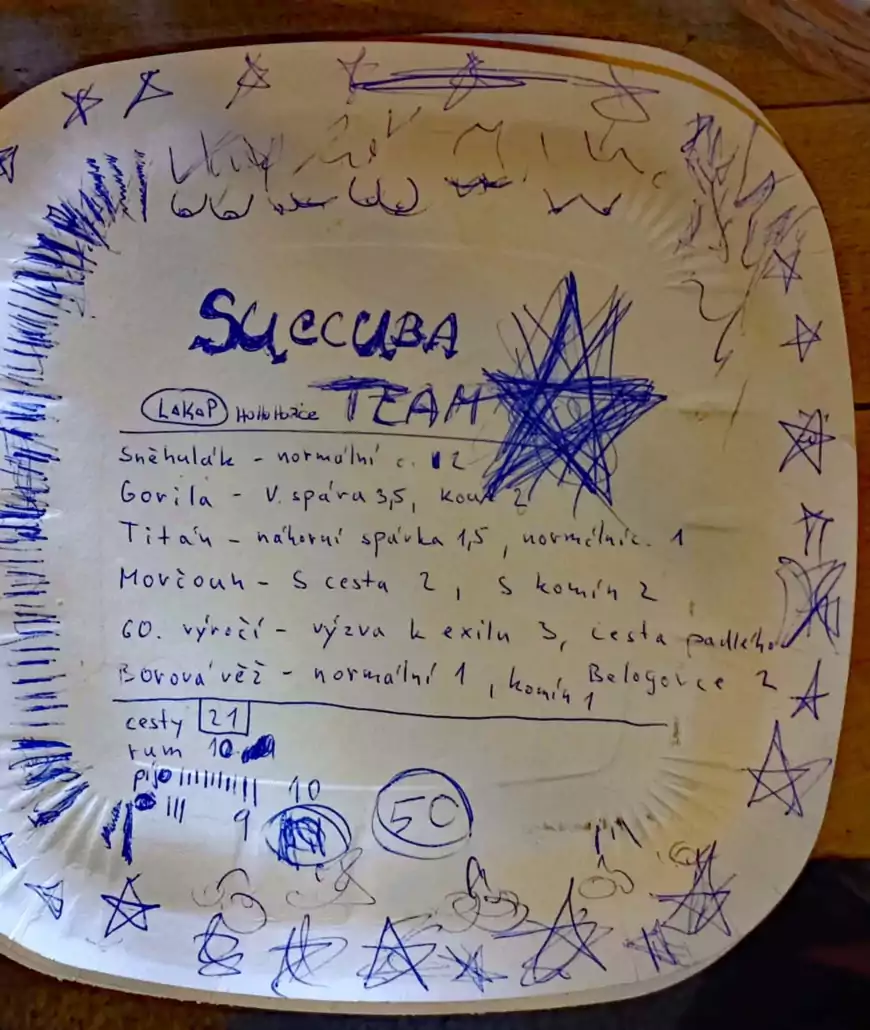 SUCCUBA
TEAM
LAKAP HoHoHožce
Sněhulák - normální c. 2
Gorila - V. spára 3,5, kout 2
Titán - náhorní spárka 1,5, normální c. 1
Morčoun - S cesta 2, S komín 2
60. výročí - výzva k exilu 3, cesta padlého
Belogovce 2
Borová věž - normální 1, komín 1
cesty 21
rum 10
pivo IIIIIIIII 10
III 9
50